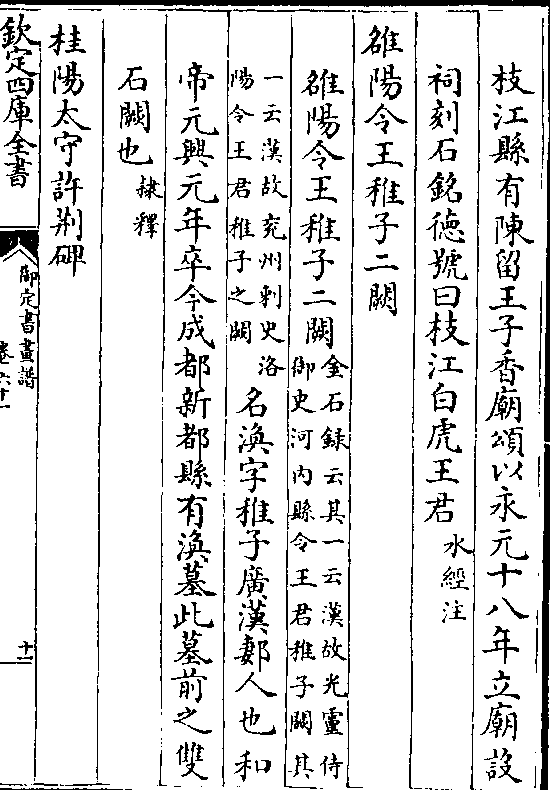 枝江縣有陳留王子香廟頌以永元十八年立廟設
祠刻石銘德號曰枝江白虎王君水經注
雒陽令王稚子二闕
雒陽令王稚子二闕金石録云其一云漢故光靈侍
御史河内縣令王君稚子闕其
一云漢故兖州刺史洛
陽令王君稚子之闕名渙字稚子廣漢郪人也和
帝元興元年卒今成都新都縣有渙墓此墓前之雙
石闕也隷釋
桂陽太守許荆碑
欽定四庫全書
御定書畫譜
卷六十一
十一